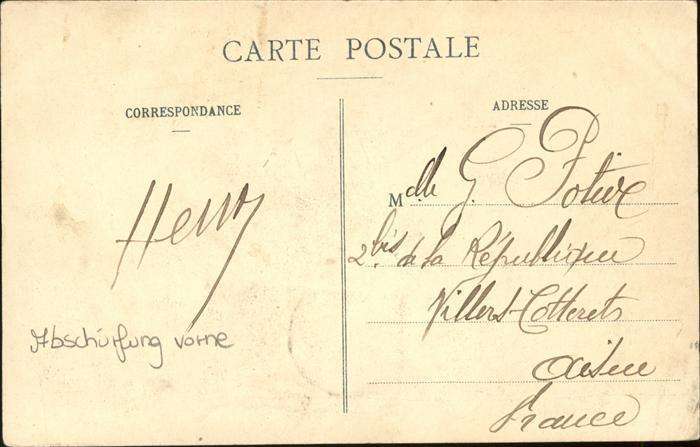 CARTE POSTALE
CORRESPONDANCE
ADRESSE
Henry
Abschürfung vorne
Mdlle G. Potier
2bis de la République
Villers-Cotterets
Aisne
France